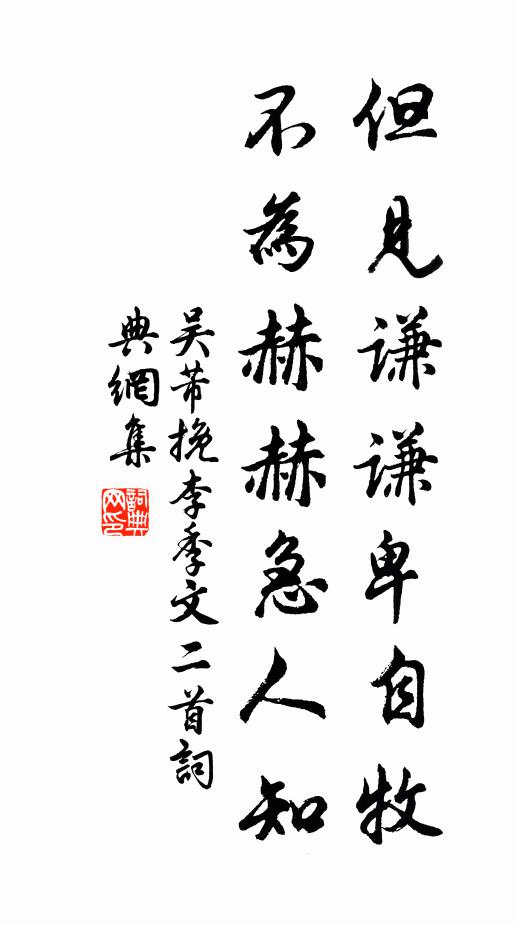 但見謙謙卑自牧
不為赫赫急人知
吳芾挽李季文二首詞
典網集
詞典網印